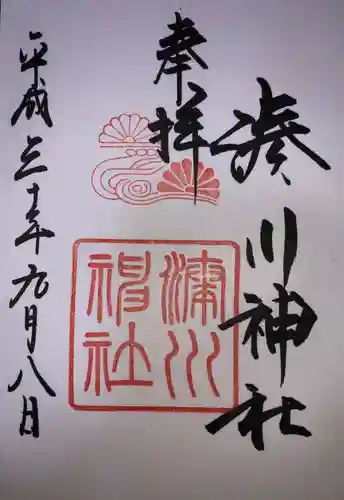 奉拝
湊川神社
湊川神社
平成三十年九月八日